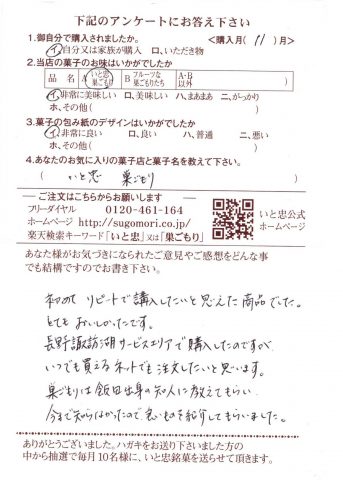 下記のアンケートにお答え下さい
1.御自分で購入されましたか。 <購入月( 11 )月>
イ,自分又は家族が購入 ロ,いただき物
2.当店の菓子のお味はいかがでしたか
品 名 A いと忠巣ごもり B フルーツな巣ごもりたち A・B以外
イ,非常に美味しい ロ,美味しい ハ,まあまあ ニ,がっかり
ホ,その他( )
3.菓子の包み紙のデザインはいかがでしたか
イ,非常に良い ロ,良い ハ,普通 ニ,悪い
ホ,その他( )
4.あなたのお気に入りの菓子店と菓子名を教えて下さい。
( いと忠 巣ごもり )
ご注文はこちらからお願いします
フリーダイヤル 0120-461-164
ホームページ http://sugomori.co.jp/
楽天検索キーワード「いと忠」又は「巣ごもり」
いと忠公式
ホームページ
あなた様がお気づきになられたご意見やご感想をどんな事
でも結構ですのでお書き下さい。
初めて リピートで購入したいと思えた商品でした。
とても おいしかったです。
長野諏訪湖サービスエリアで購入したのですが
いつでも買えるネットでも注文したいと思います。
巣ごもりは飯田出身の知人に教えてもらい
今まで知らなかったので良いものを紹介してもらいました。
ありがとうございました。ハガキをお送り下さいました方の
中から抽選で毎月10名様に、いと忠銘菓を送らせて頂きます。